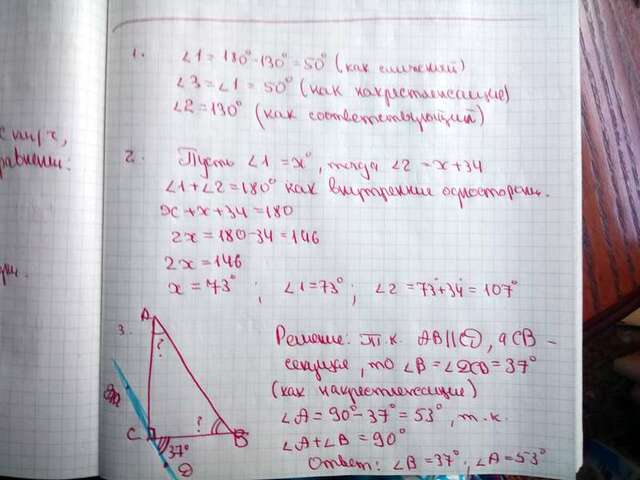 с ни/ч,
равнении:
1. ∠1 = 180° - 130° = 50° (как смежный)
∠3 = ∠1 = 50° (как накрестлежащие)
∠2 = 130° (как соответствующий)
2. Пусть ∠1 = x°, тогда ∠2 = x + 34
∠1 + ∠2 = 180° как внутренние односторонн.
x + x + 34 = 180
2x = 180 - 34 = 146
2x = 146
x = 73° ; ∠1 = 73° ; ∠2 = 73° + 34° = 107°
3.
A
?
?
C
B
37°
D
Решение: Т.к. AB || CD, а CB -
секущая, то ∠B = ∠DCB = 37°
(как накрестлежащие)
∠A = 90° - 37° = 53°, т.к.
∠A + ∠B = 90°
Ответ: ∠B = 37°; ∠A = 53°